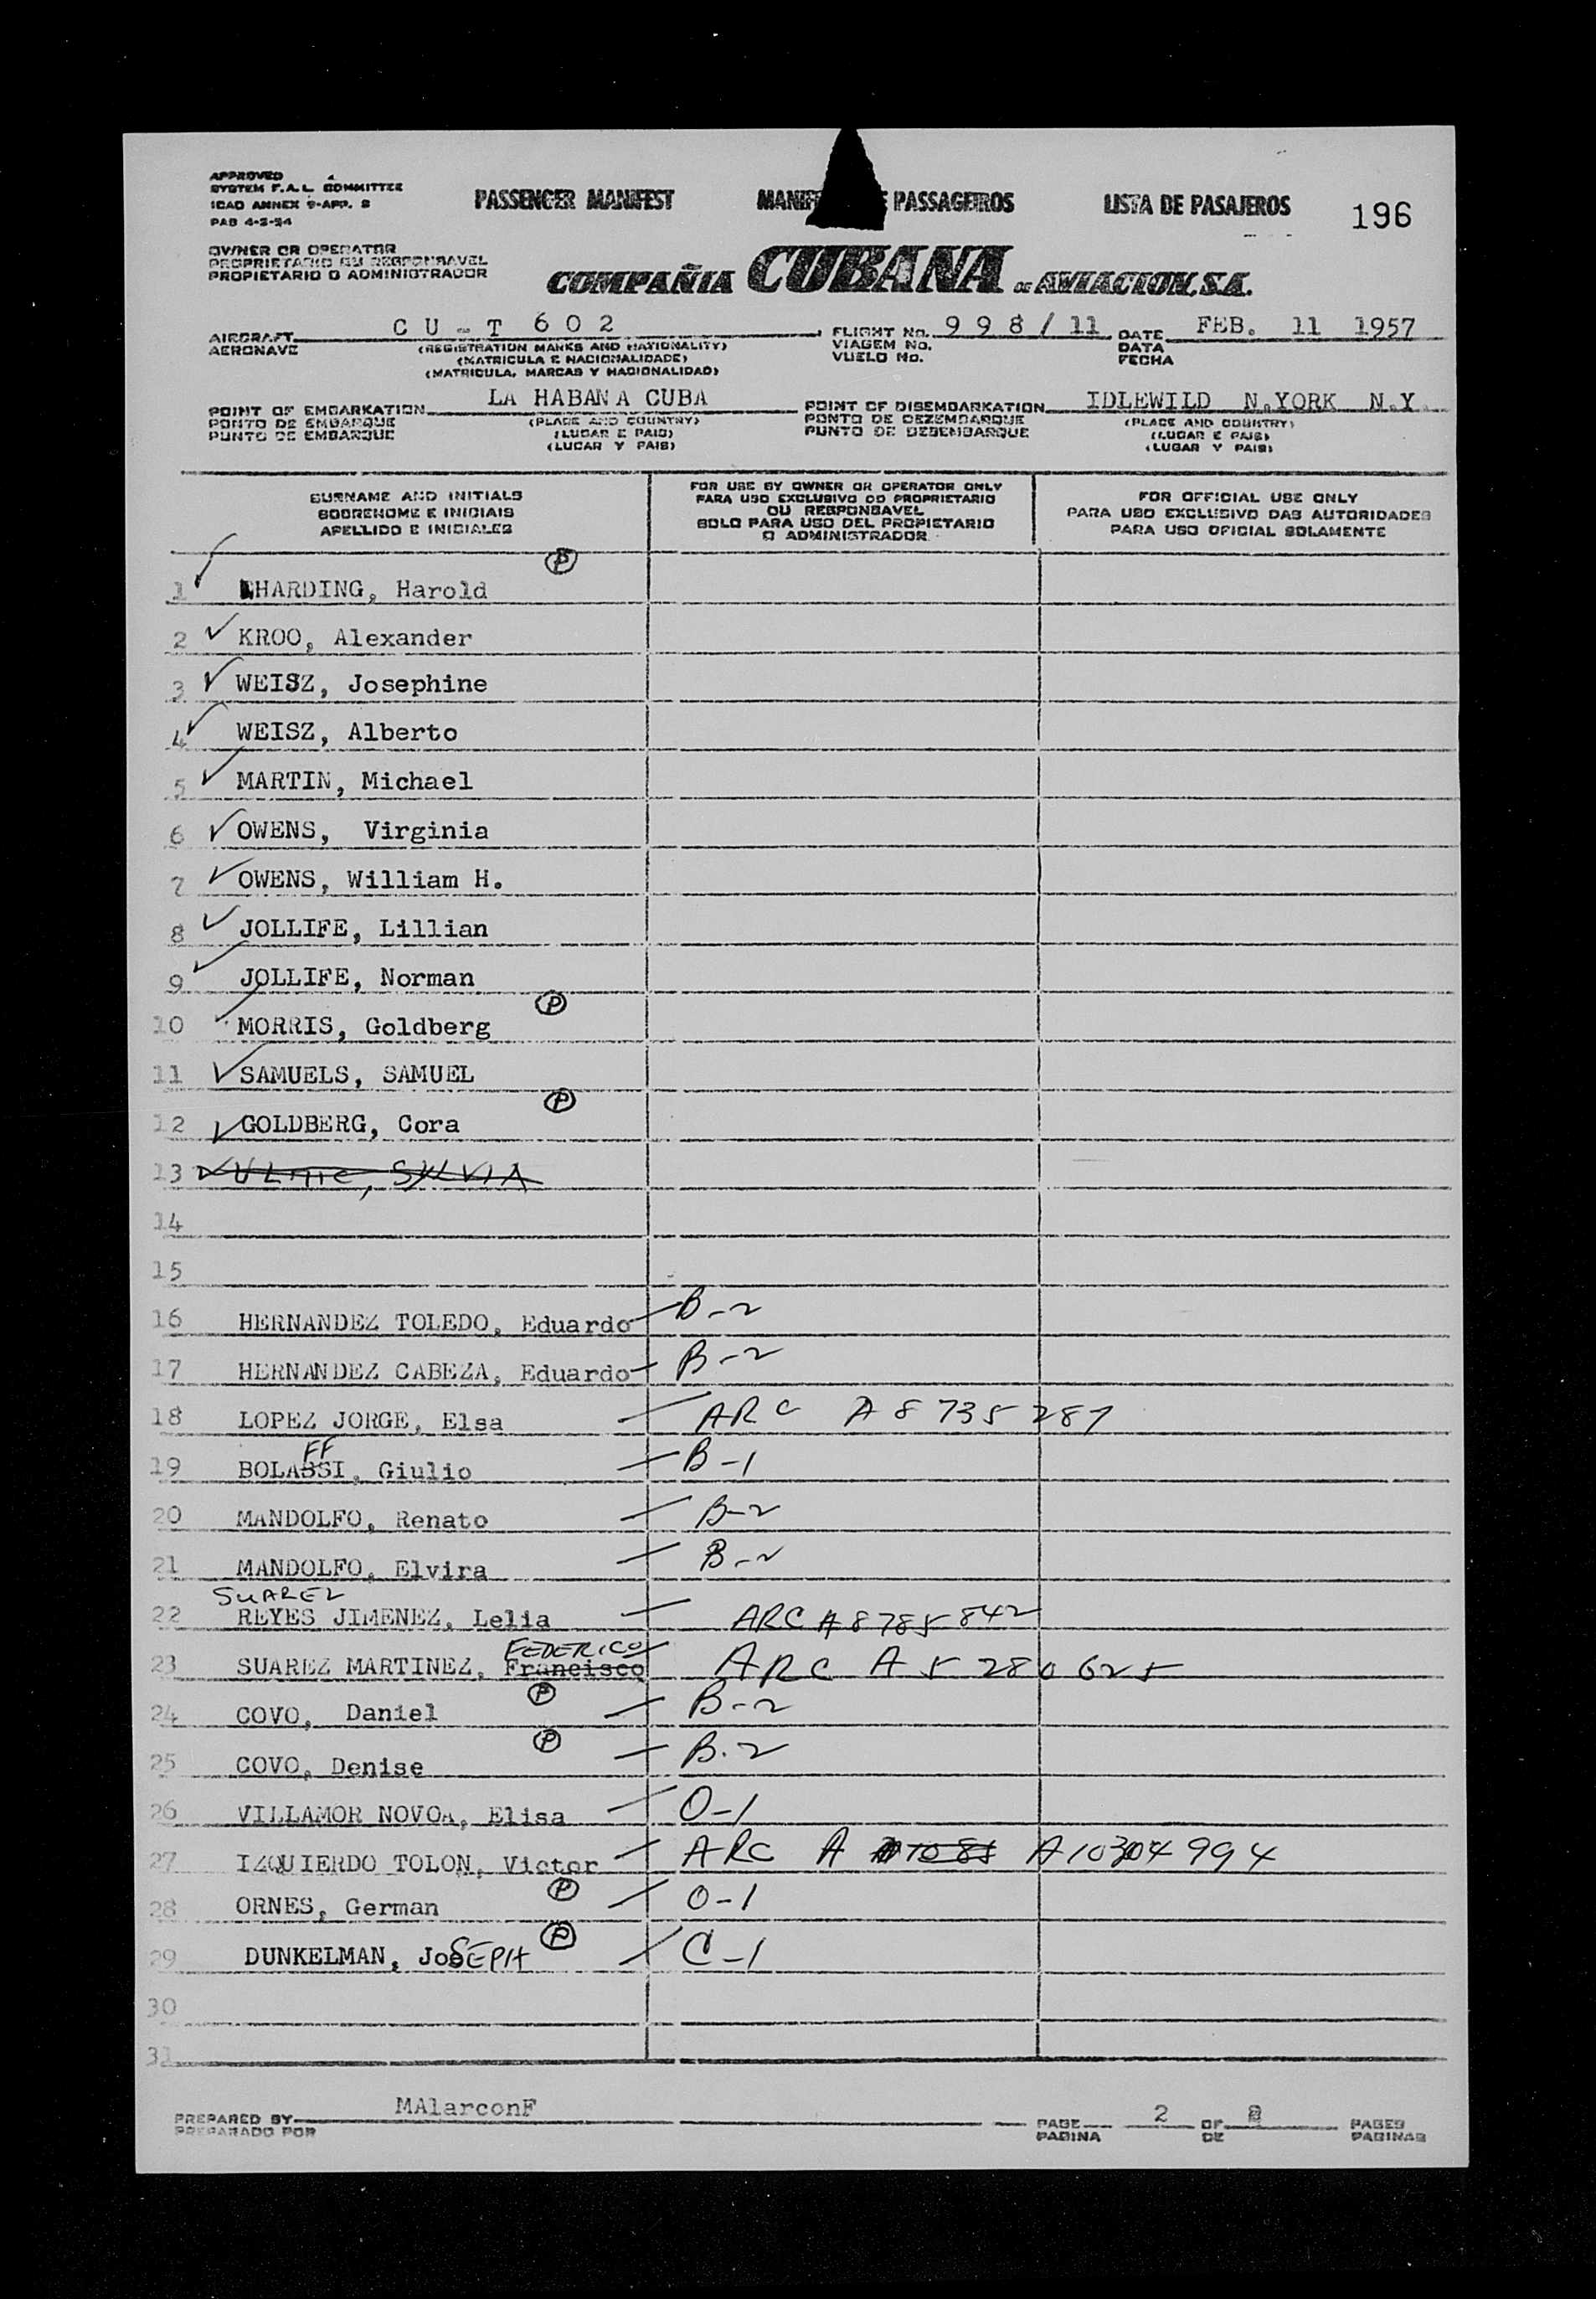 APPROVED
SYSTEM F.A.L. COMMITTEE
ICAO ANNEX 9-APP. 
PAB 4-2-54
PASSENGER MANIFEST
MANIF PASSAGEIROS
LISTA DE PASAJEROS
196
OWNER OR OPERATOR
PROPRIETARIO OU RESPONSAVEL
PROPIETARIO O ADMINISTRADOR
COMPAÑIA CUBANA DE AVIACION, S.A.
AIRCRAFT CU-T 602 FLIGHT No. 998/11 DATE FEB. 11 1957
AERONAVE (REGISTRATION MARKS AND NATIONALITY) VIAGEM No. DATA
(MATRICULA E NACIONALIDADE) VUELO No. FECHA
(MATRICULA, MARCAS Y NACIONALIDAD)
POINT OF EMBARKATION LA HABANA CUBA POINT OF DISEMBARKATION IDLEWILD N.YORK N.Y.
PONTO DE EMBARQUE (PLACE AND COUNTRY) PONTO DE DEZEMBARQUE (PLACE AND COUNTRY)
PUNTO DE EMBARQUE (LUGAR E PAIS) PUNTO DE DESEMBARQUE (LUGAR E PAIS)
(LUGAR Y PAIS) (LUGAR Y PAIS)
SURNAME AND INITIALS
SOBRENOME E INICIAIS
APELLIDO E INICIALES
FOR USE BY OWNER OR OPERATOR ONLY
PARA USO EXCLUSIVO DO PROPRIETARIO
OU RESPONSAVEL
SOLO PARA USO DEL PROPIETARIO
O ADMINISTRADOR
FOR OFFICIAL USE ONLY
PARA USO EXCLUSIVO DAS AUTORIDADES
PARA USO OFICIAL SOLAMENTE
1 HARDING, Harold P
2 KROO, Alexander
3 WEISZ, Josephine
4 WEISZ, Alberto
5 MARTIN, Michael
6 OWENS, Virginia
7 OWENS, William H.
8 JOLLIFE, Lillian
9 JOLLIFE, Norman
10 MORRIS, Goldberg P
11 SAMUELS, SAMUEL
12 GOLDBERG, Cora P
13 SYLVIA
14
15
16 HERNANDEZ TOLEDO, Eduardo B-2
17 HERNANDEZ CABEZA, Eduardo B-2
18 LOPEZ JORGE, Elsa ARC A8735287
FF
19 BOLASSI, Giulio B-1
20 MANDOLFO, Renato B-2
21 MANDOLFO, Elvira B-2
SUAREZ
22 REYES JIMENEZ, Lelia ARC A8785842
FEDERICO
23 SUAREZ MARTINEZ, Francisco ARC A5280625
24 COVO, Daniel P B-2
25 COVO, Denise P B-2
26 VILLAMOR NOVOA, Elisa O-1
27 IZQUIERDO TOLON, Victor ARC A A10304994
28 ORNES, German P O-1
29 DUNKELMAN, JoSEPH P C-1
30
31
PREPARED BY MAlarconF PAGE 2 OF PAGES
PREPARADO POR PAGINA DE PAGINAS